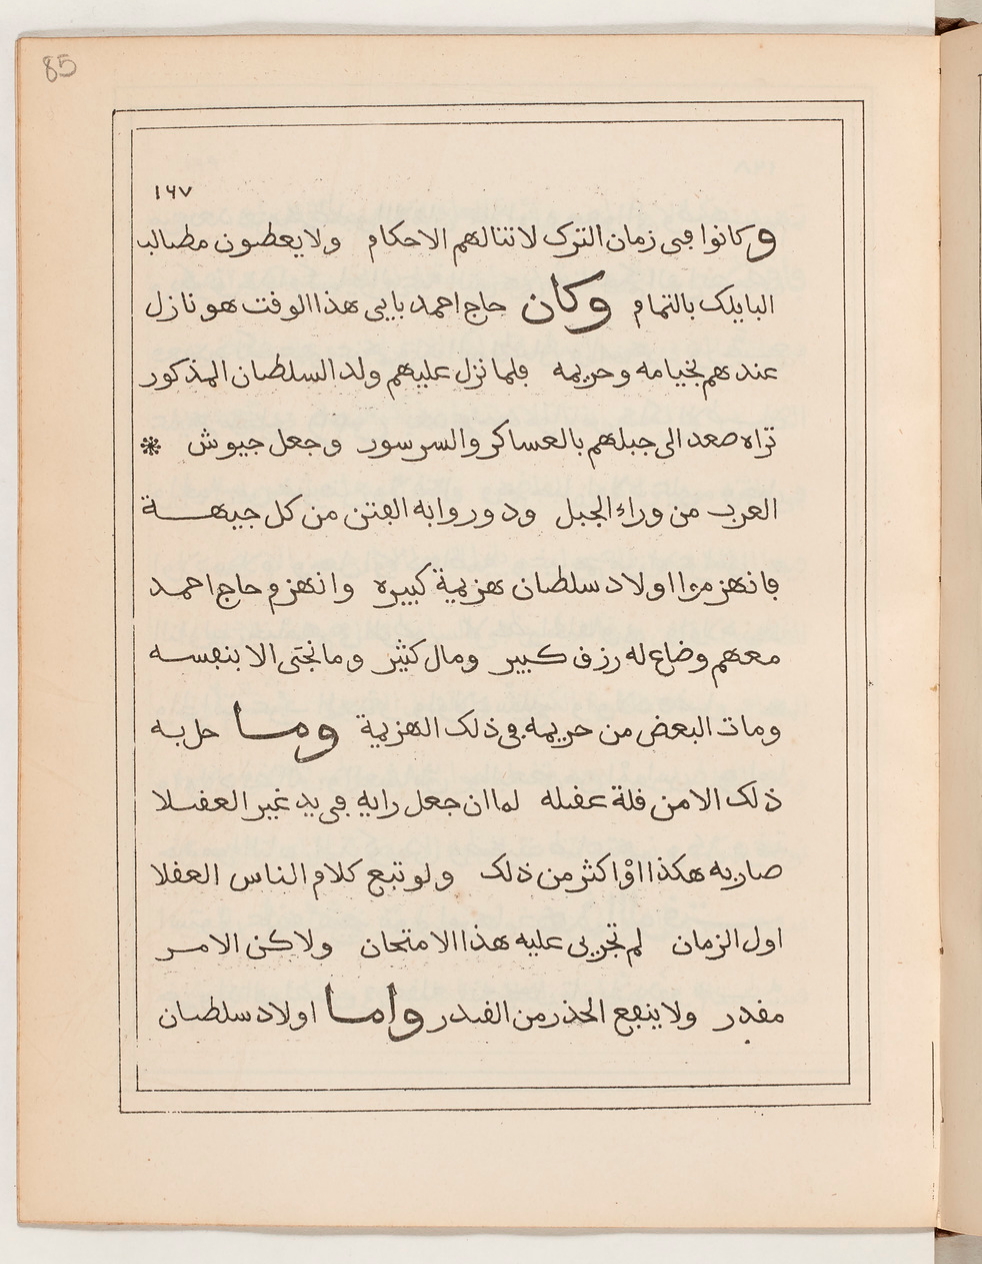 85
١٦٧
وكانوا في زمان الترك لا تنالهم الاحكام ولا يعطون مطالب
البايلك بالتمام وكان حاج احمد باي في هذا الوقت هو نازل
عندهم بخيامه وحريمه فلما نزل عليهم ولد السلطان المذكور
تراه صعد الى جبلهم بالعساكر والسرسور وجعل جيوش *
العرب من وراء الجبل ودوروا به الفتن من كل جيهة
فانهزموا اولاد سلطان هزيمة كبيره وانهزم حاج احمد
معهم وضاع له رزق كبير ومال كثير وما نجى الا بنفسه
ومات البعض من حريمه في ذلك الهزيمة وما حل به
ذلك الا من قلة عقله لما ان جعل رايه في يد غير العقلا
صار به هكذا اوْ اكثر من ذلك ولو تبع كلام الناس العقلا
اول الزمان لم تجرى عليه هذا الامتحان ولاكن الامر
مقدر ولا ينفع الحذر من القدر واما اولاد سلطان